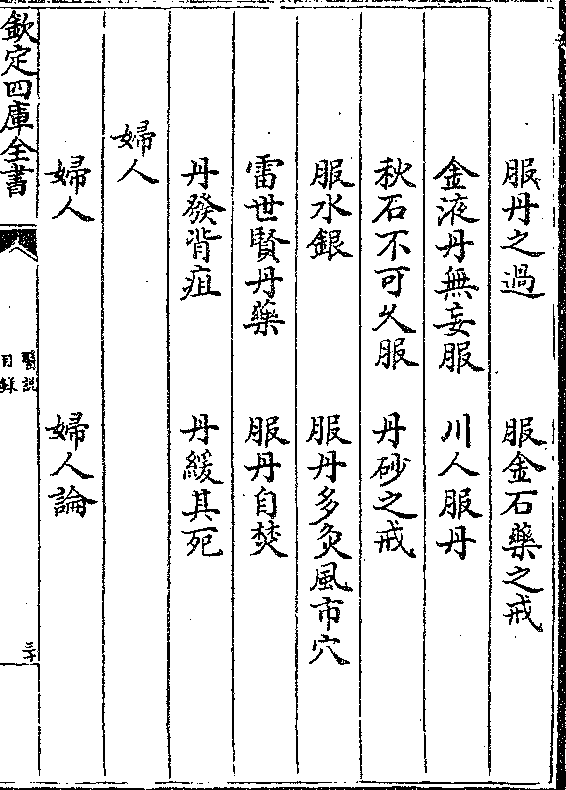 服丹之過　服金石藥之戒
金液丹無妄服　川人服丹
秋石不可久服　丹砂之戒
服水銀　服丹多灸風市穴
雷世賢丹藥　服丹自焚
丹發背疽　丹緩其死
婦人
婦人　婦人論
欽定四庫全書
醫說
目錄
三十